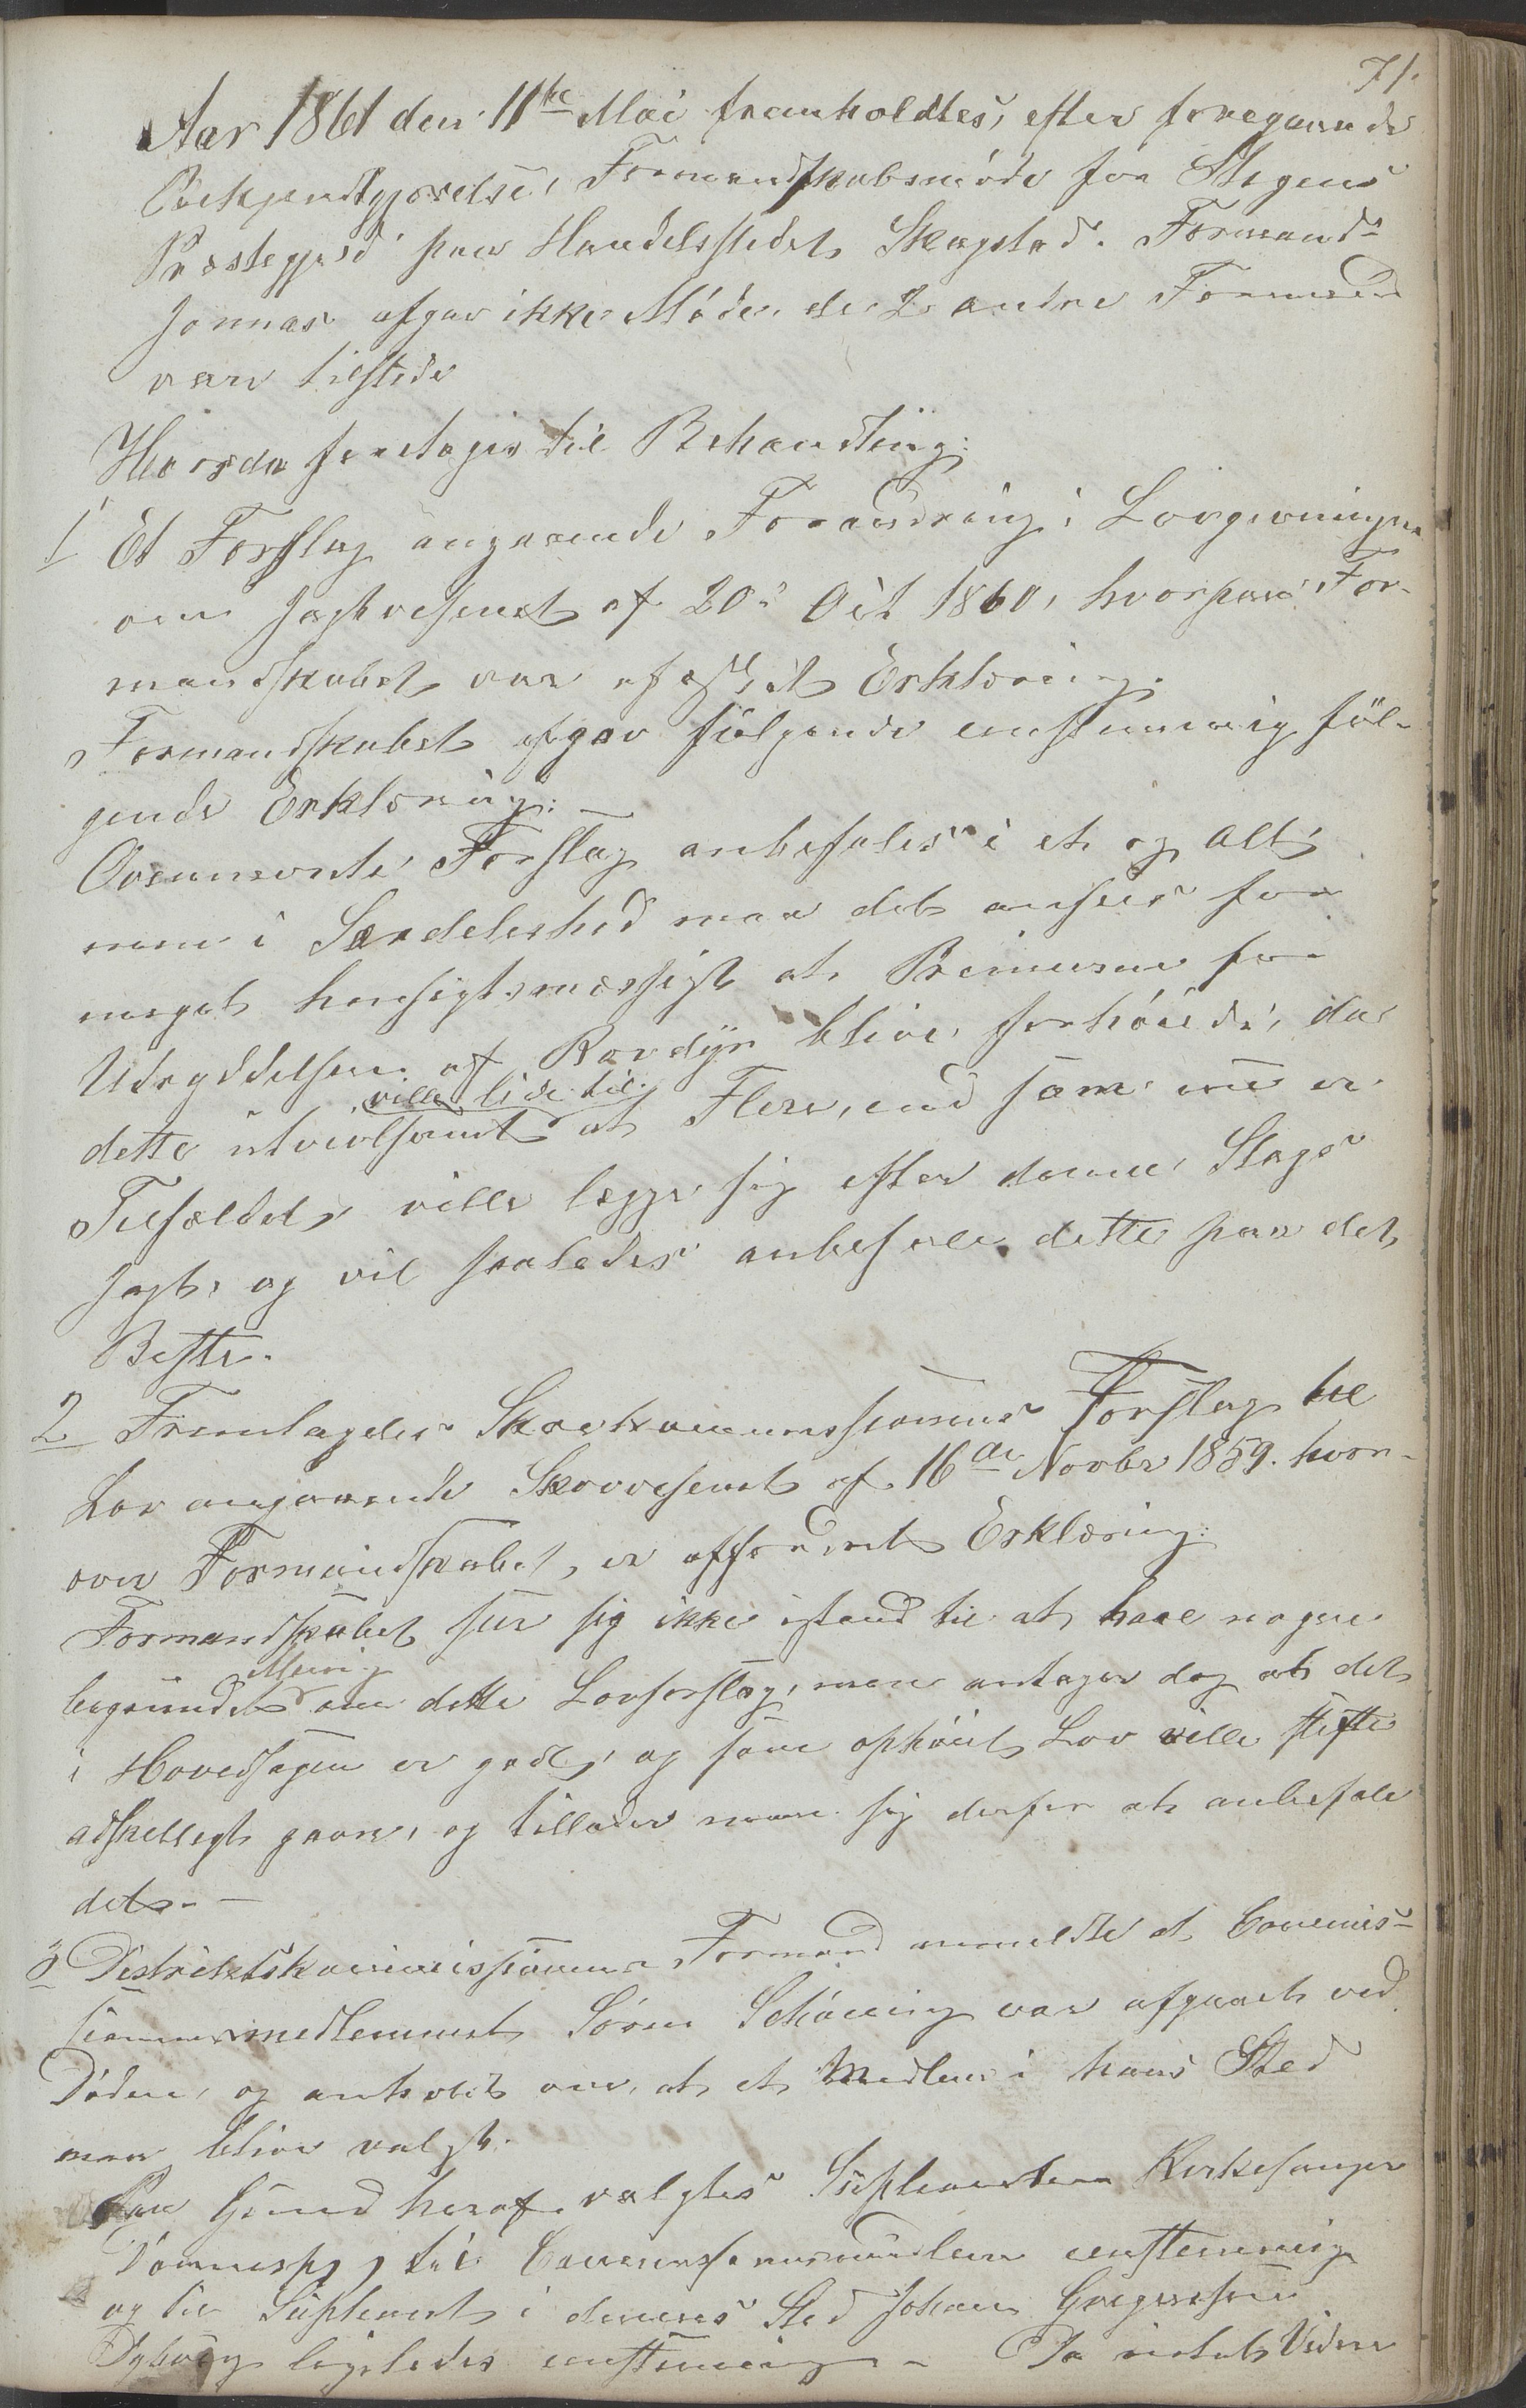 71.
Aar 1861 den 11te Mai framholdtes, efter foregaaende
Bekjendtgjørelse, Formandskabsmøde for Stegens
Præstegjeld paa Handelsstedet Skagstad. Formand
Jonnas afgav ikke Møde, de 2 andre Formænd
vare tilstede
Hvorda foretoges til Behandling:
1 Et Forslag angaaende Forandring i Lovgivningen
om Jagtvesenet af 20de Oct 1860, hvorpaa For-
mandskabet var afæsket Erklæring.
Formandskabet afgav følgende enstemmig føl-
gende Erklæring:
Ovennævnte Forslag anbefales i et og alt,
men i Særdeleshed maa det ansees for
meget hensigtsmæssigt at Præmierne for
Udryddelsen af Rovdyr blive forhøiede, da
dette utvivlsomt ville lede til at Flere, end som nu er
Tilfældet, ville lægge sig efter denne Slags
Jagt, og vil saaledes anbefale dette paa det
Beste.
2 Fremlagdes Skovkommissionens Forslag til
Lov angaaende Skovvesenet af 16de Novbr 1859. hvor-
over Formandskabet, er affordret Erklæring.
Formandskabet seer sig ikke istand til at have nogen
begrundet Mening om dette Lovforslag, men antager dog at det
i Hovedsagen er godt, og som ophøiet Lov ville stifte
adskilligt gavn, og tillader man sig derfor at anbefale
det. -
3 Distriktskommissionens Formand anmeldte at Commis-
sionsmedlemmet Søren Schøning var afgaaet ved
Døden, og anholdt om, at et Medlem i hans Sted
maa blive valgt.
Paa Grund heraf valgtes Suplianten Kirkesanger
til Commissionsmedlem enstemmig
og til Supleant i dennes Sted Johan Gregersen
ligeledes enstemmig - Da intet Videre